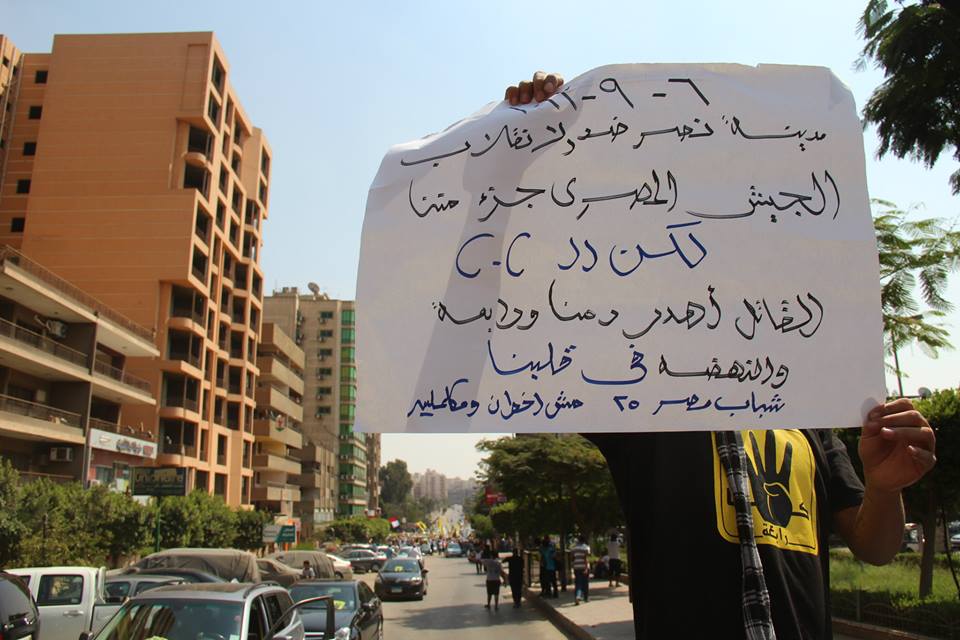 ٦-٩-٢٠١٣
مدينة نصر ضد الانقلاب
الجيش المصرى جزء مننا
لكن دا C-C
القاتل أهدر دمنا ورابعة
والنهضه فى قلبنا
شباب مصر ٢٥ مش اخوان ومكملين
رابعة